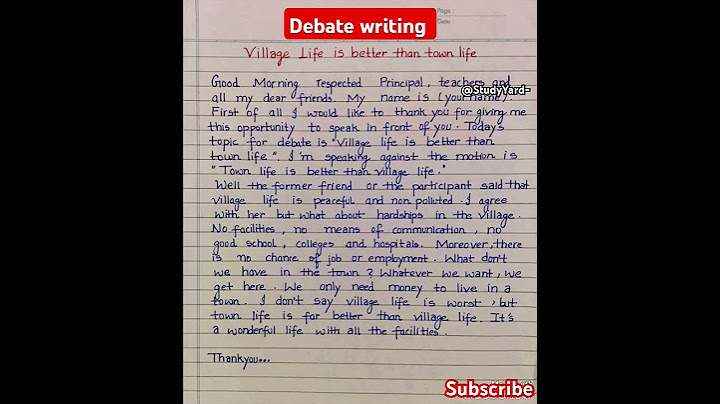 Debate writing
Page:
Date:
Village Life is better than town life
Good Morning respected Principal, teachers and
@StudyYard-
all my dear friends. My name is (your name).
First of all I would like to thank you for giving me
this opportunity to speak in front of you. Today's
topic for debate is "Village life is better than
town life". I'm speaking against the motion is
"Town life is better than village life."
Well the former friend or the participant said that
village life is peaceful and non polluted. I agree
with her but what about hardships in the village.
No facilities, no means of communication, no
good school, colleges and hospitals. Moreover, there
is no chance of job or employment. What don't
we have in the town? Whatever we want, we
get here. We only need money to live in a
town. I don't say village life is worst, but
town life is far better than village life. It's
a wonderful life with all the facilities.
Thankyou...
Subscribe